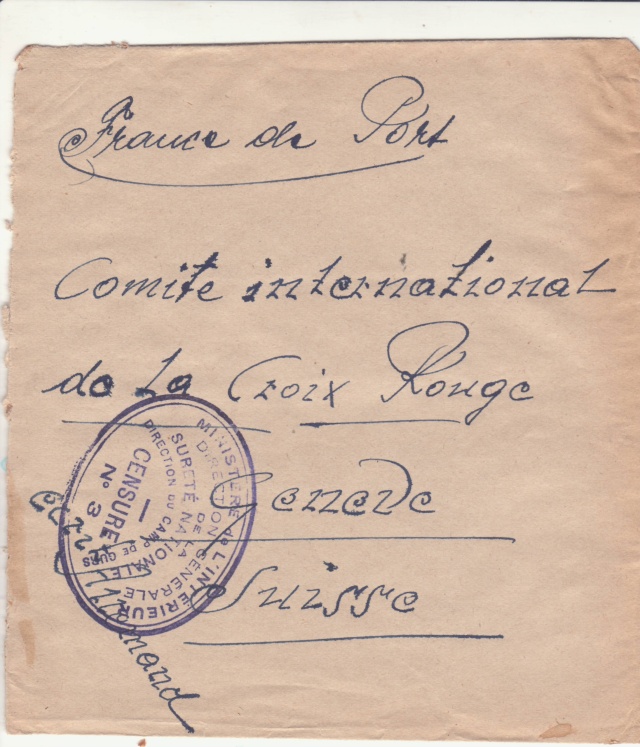 France de Port
Comite international
de La Croix Rouge
Geneve
Suisse
MINISTÈRE de L'INTERIEUR
DIRECTION GÉNÉRALE
DE LA
SURETÉ NATIONALE
DIRECTION DU CAMP DE GURS
CENSURE
N° 3